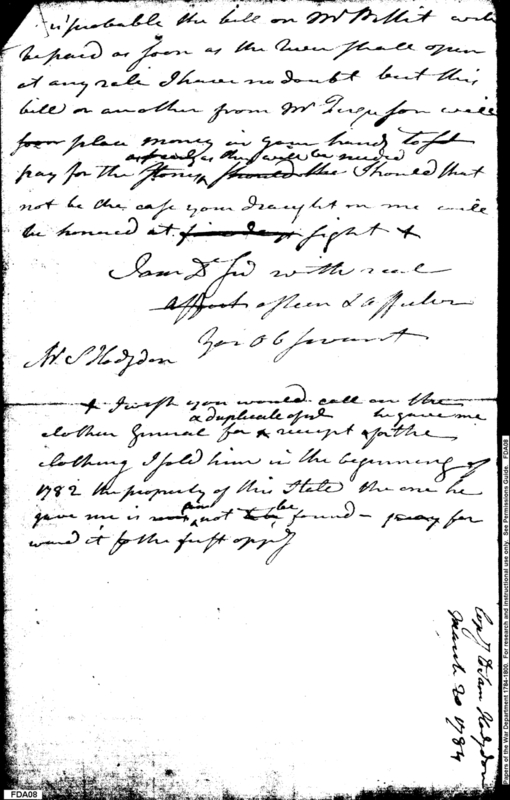 is probable the bill on Mr Pettit will
be paid as soon as the River shall open
at any rate I have no doubt but this
bill or another from Mr Ferguson will
soon place money in your hands to
pay for the Stones as they will be needed should that
not be the case your draught on me will
be honored at five days sight +
I am Dr Sir with real
affect esteem &
Your Ob servant
Mr S Hodgdon
+ I wish you would call on the
clothier General for a duplicate of ye receipt he gave me for the
clothing I sold him in the beginning of
1782 the property of this State the one he
gave me is not to be found - pray for
ward it by the first oppy
Copy to Sam Hodgdon
March 20 1784
FDA08
Papers of the War Department 1784-1800. For research and instructional use only. See Permissions Guide. FDA08